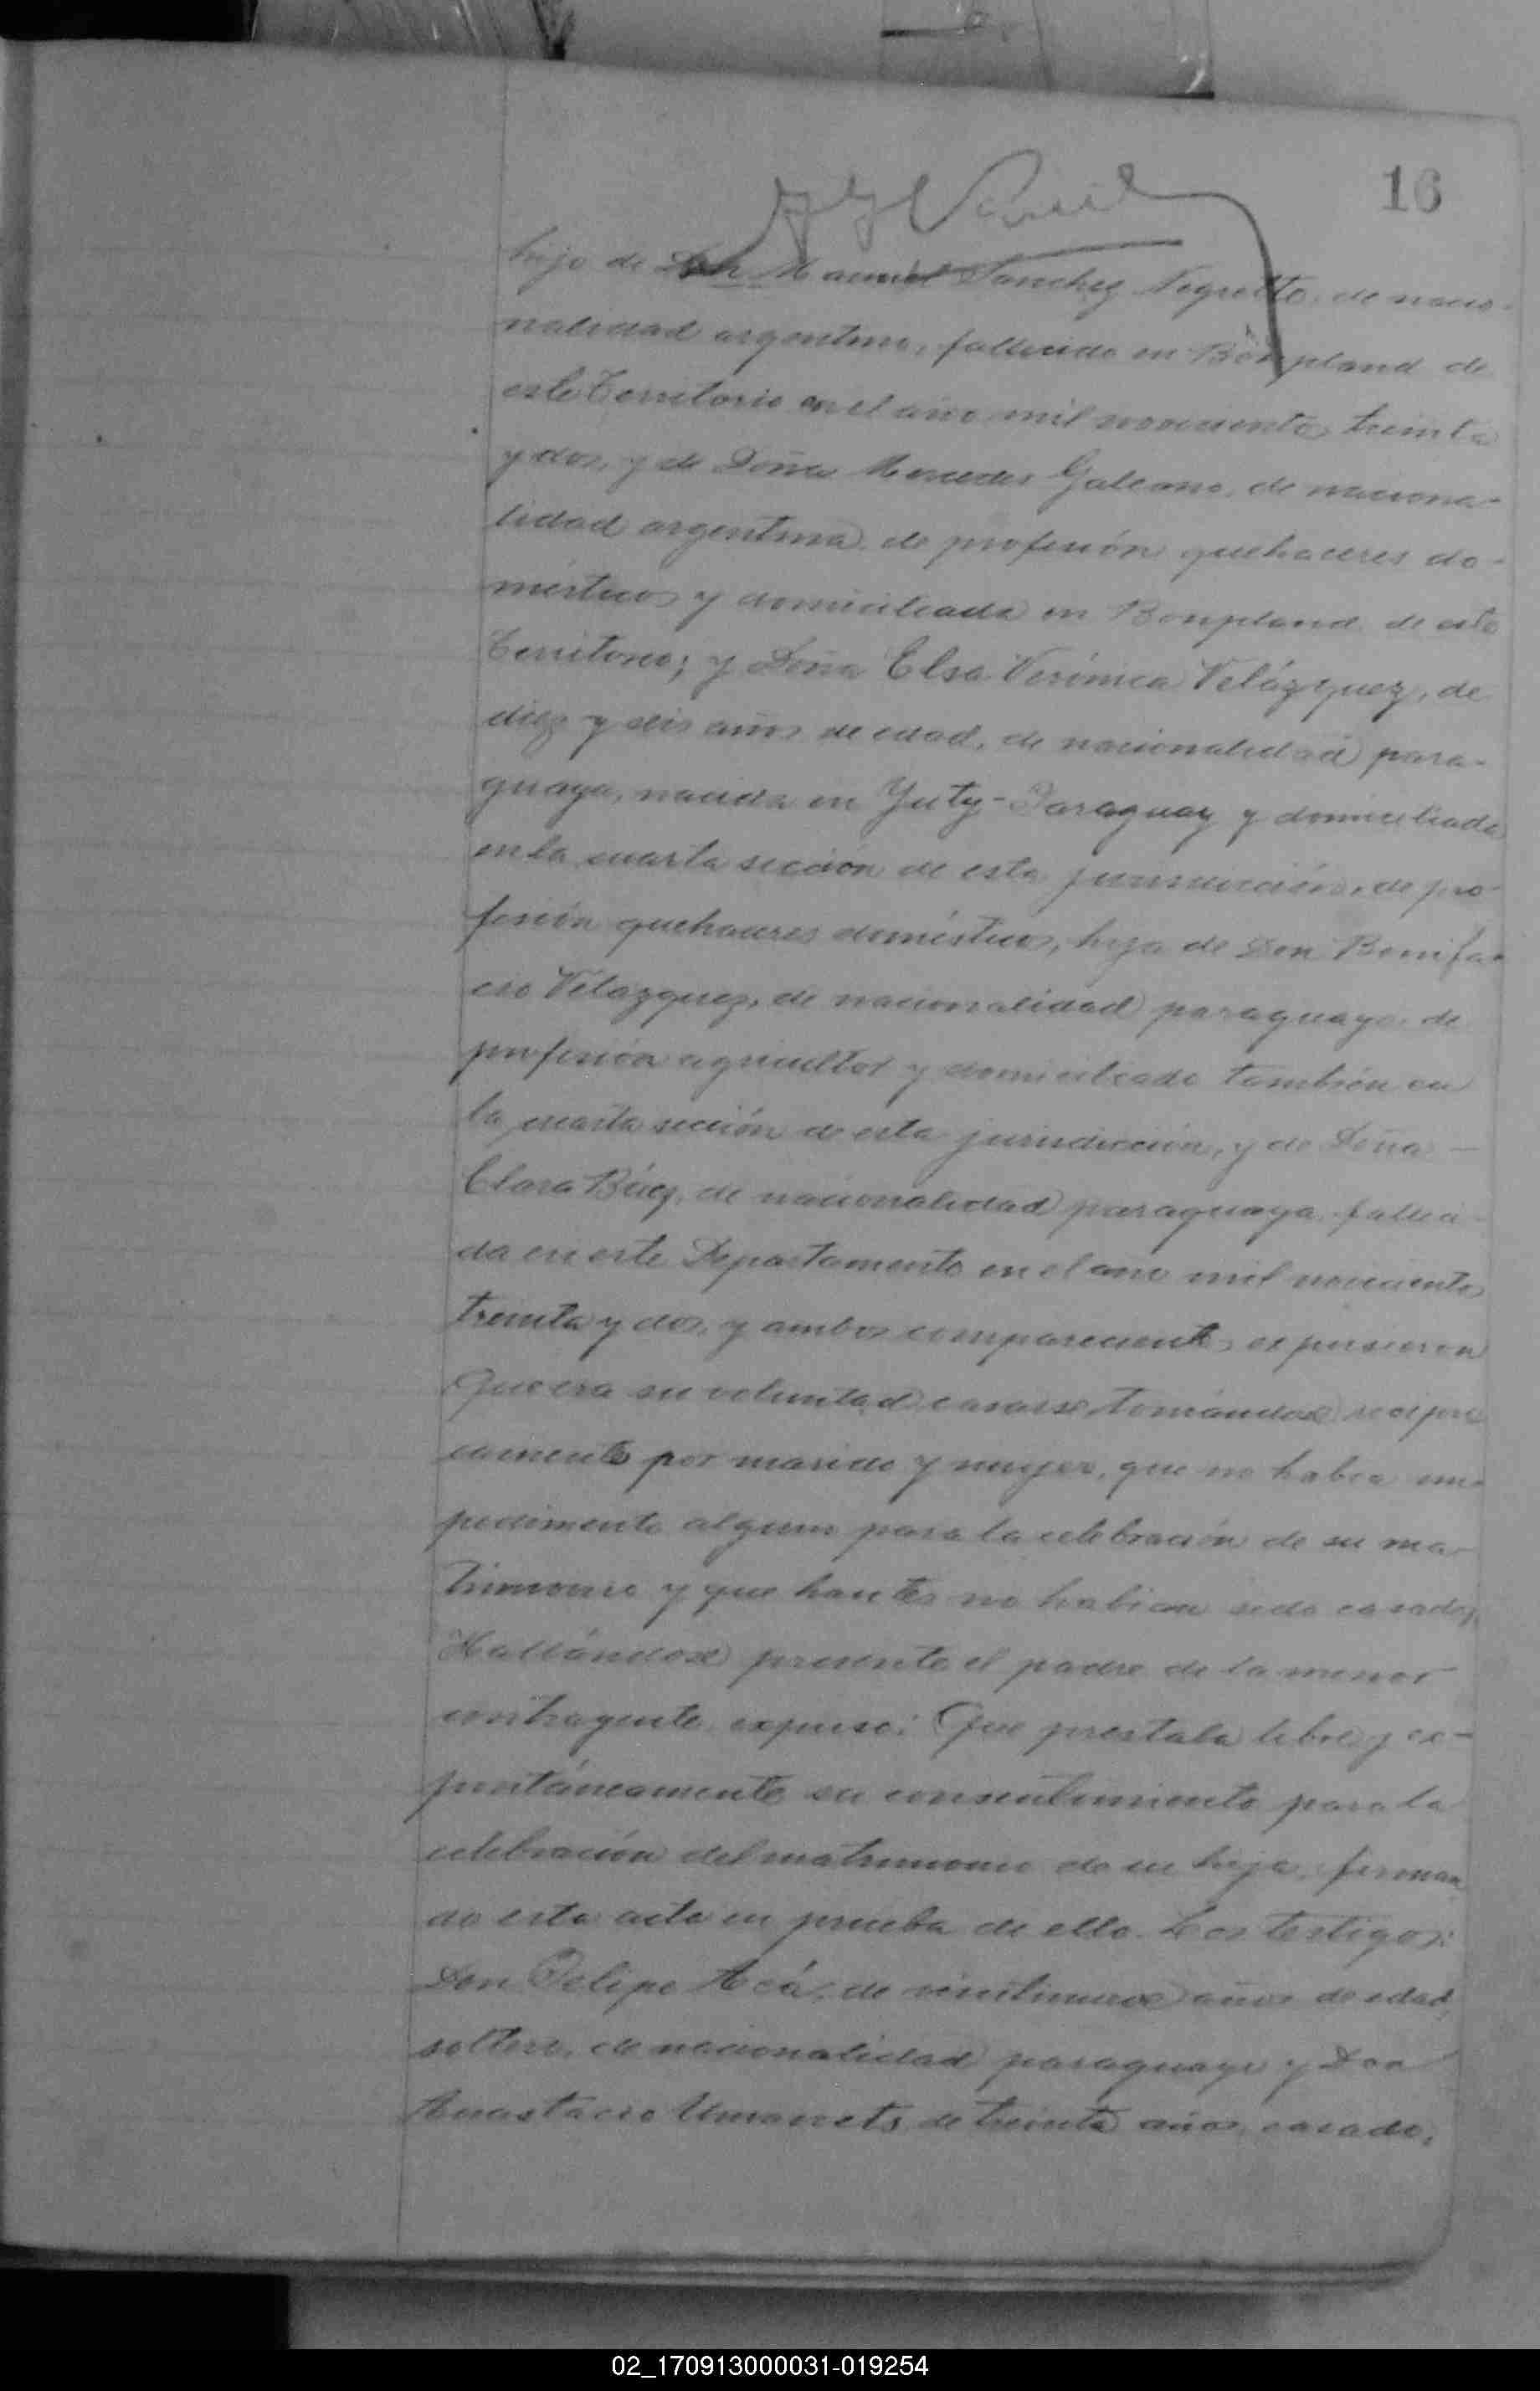 16
hijo de Don Manuel Sanchez Negrette, de nacio-
nalidad argentino, fallecido en Bonpland de
este Territorio en el año mil novecientos treinta
y dos, y de Doña Mercedes Galeano, de naciona-
lidad argentina, de profesión quehaceres do-
mésticos y domiciliada en Bonpland de este
Territorio; y Doña Elsa Verónica Velázquez, de
diez y seis años de edad, de nacionalidad para-
guaya, nacida en Yuty-Paraguay y domiciliada
en la cuarta sección de esta jurisdicción, de pro-
fesión quehaceres domésticos, hija de Don Bonifa-
cio Velazquez, de nacionalidad paraguayo, de
profesión agricultor y domiciliado también en
la cuarta sección de esta jurisdicción, y de Doña —
Clara Báez, de nacionalidad paraguaya, falleci-
da en este Departamento en el año mil novecientos
treinta y dos, y ambos comparecientes expusieron
Que era su voluntad casarse, tomándose recipro
camente por marido y mujer, que no habia im-
pedimento alguno para la celebración de su ma-
trimonio y que hantes no habian sido casados,
Hallándose presente el padre de la menor
contrayente, expuso: Que prestaba libre y es-
pontáneamente su consentimiento para la
celebración del matrimonio de su hija, firman
do esta acta en prueba de ello. Los testigos:
Don Felipe de veintinueve años de edad,
soltero, de nacionalidad paraguayo y Don
Anastacio de treinta años, casado,
02_170913000031-019254